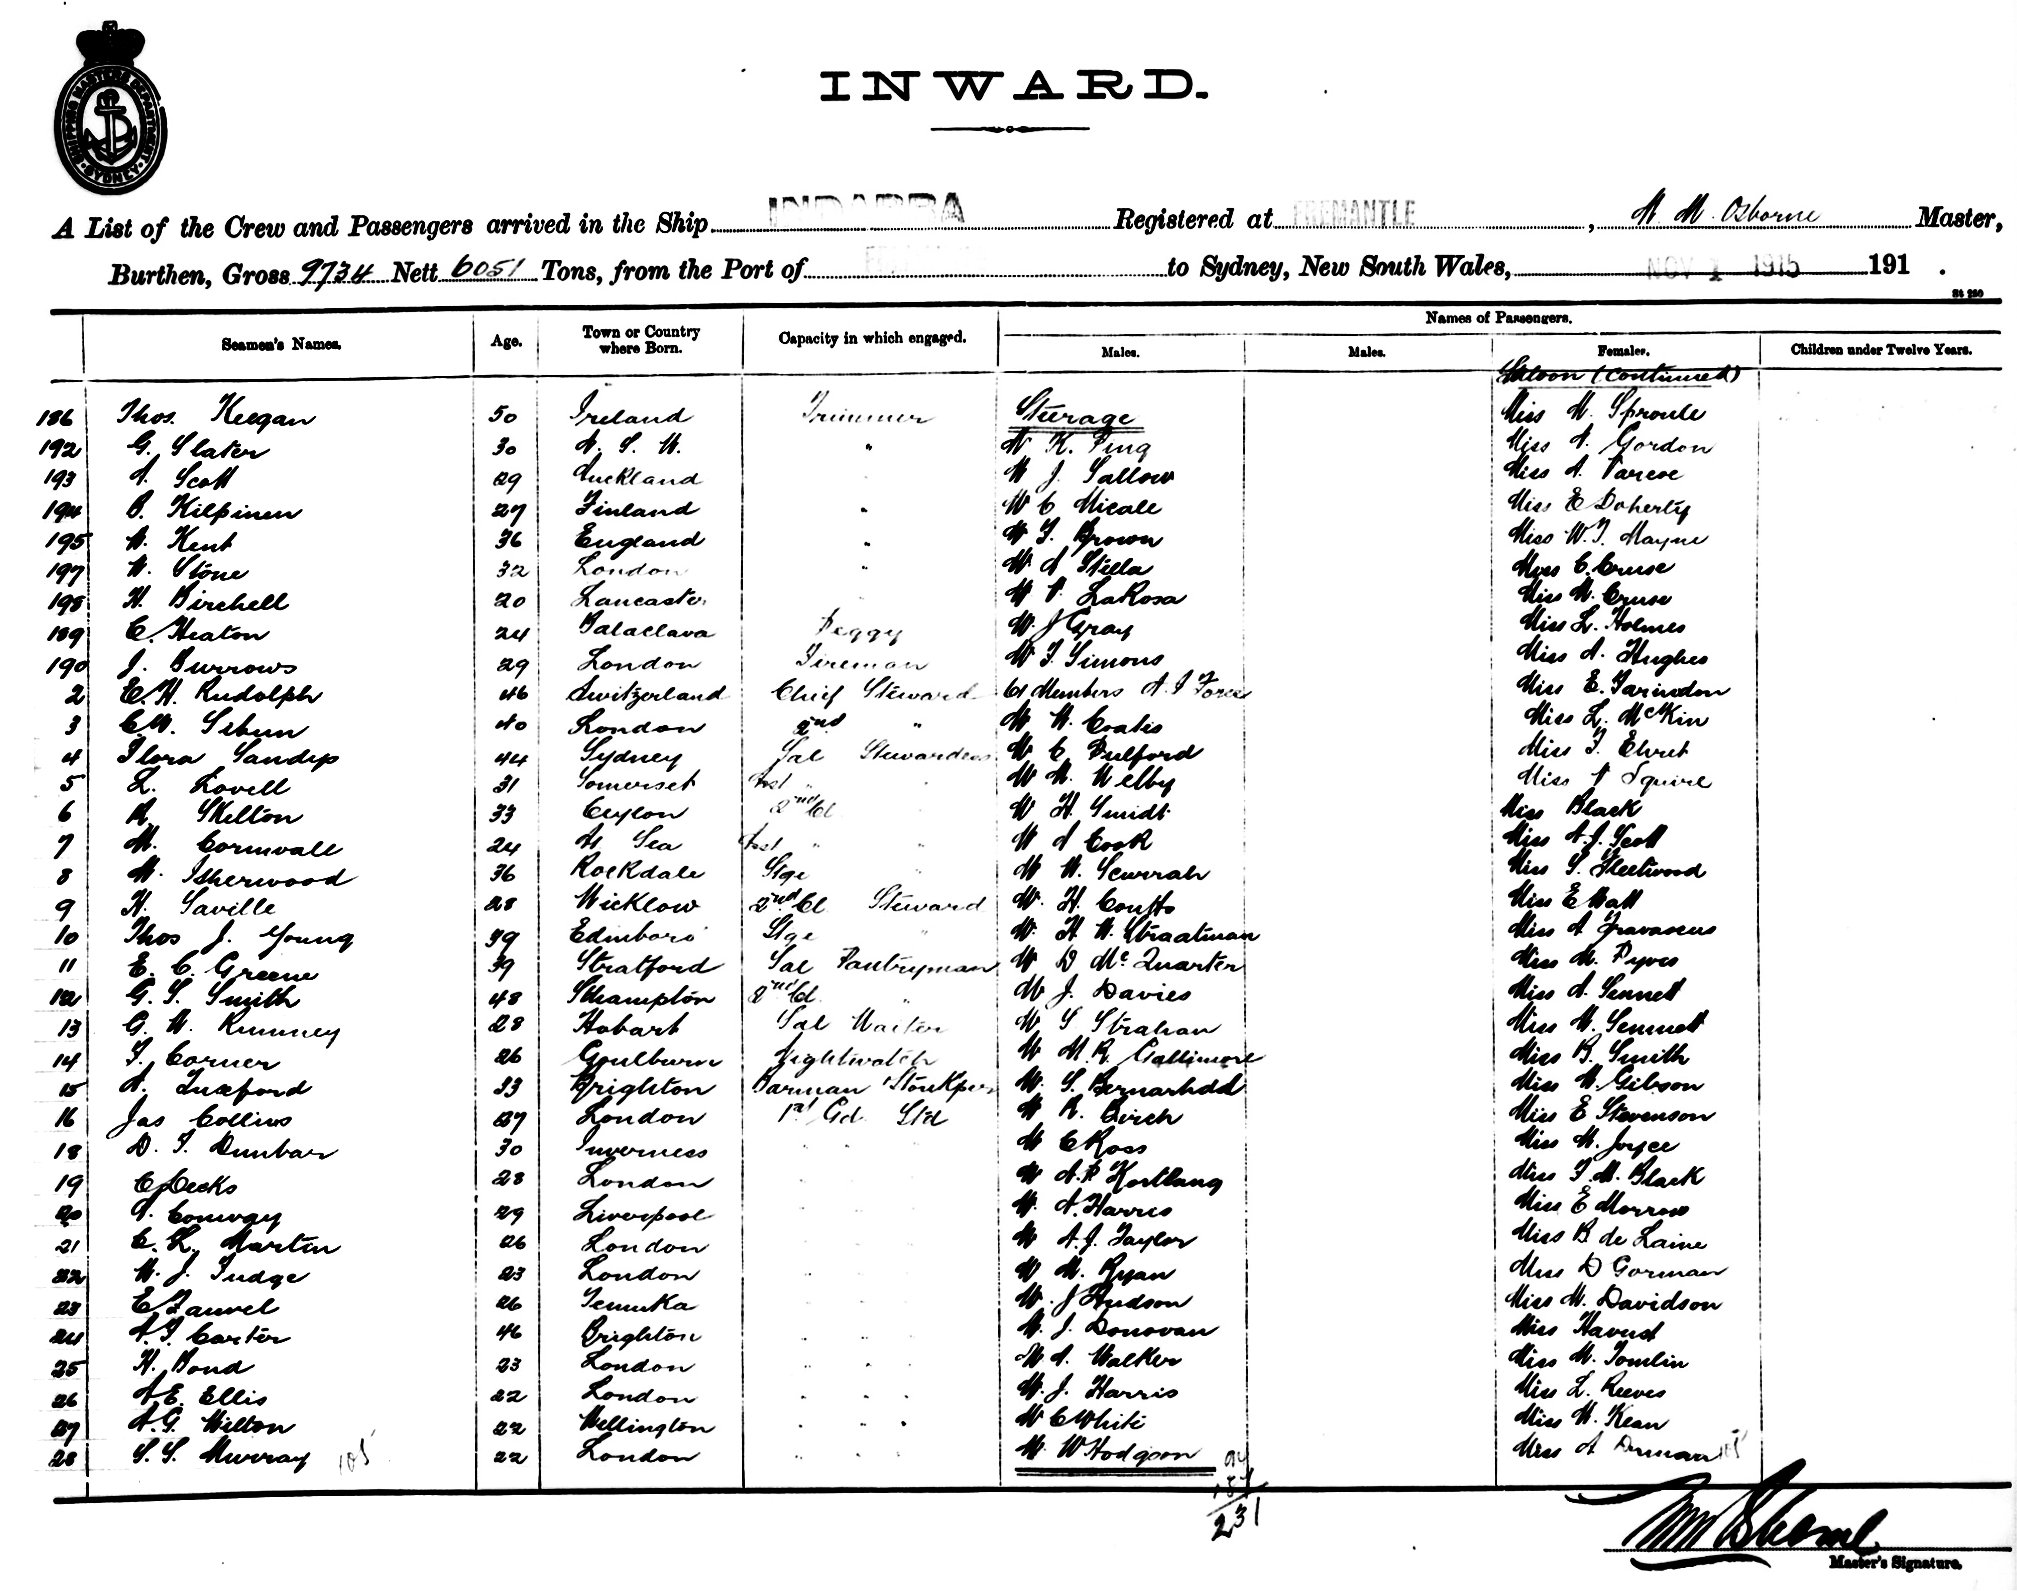 SHIPPING MASTERS DEPARTMENT SYDNEY
INWARD.
A List of the Crew and Passengers arrived in the Ship INDARRA Registered at FREMANTLE, A. M. Osborne Master,
Burthen, Gross 9734 Nett 6051 Tons, from the Port of to Sydney, New South Wales, NOV 1 1915 191 .
St 250
Seamen's Names. Age. Town or Country where Born. Capacity in which engaged. Names of Passengers.
Males. Males. Females. Children under Twelve Years.
Saloon (Continued)
186 Thos. Keegan 50 Ireland Trimmer Steerage Miss M. Sproule
192 G. Slater 30 N. S. W. " Mr K. Ping Miss A. Gordon
193 A. Scott 29 Auckland Mr J. Sallow Miss A. Parcoe
194 O. Kilpinen 27 Finland " Mr C Micale Miss E Doherty
195 W. Kent 36 England " Mr F. Brown Miss W. F. Mayne
197 W. Stone 32 London " Mr A Stella Miss C. Cruse
198 H. Birchell 20 Lancaster Mr P. LaRosa Miss M. Cruse
189 C. Heaton 24 Balaclava Peggy Mr. J Gray Miss L. Holmes
190 J. Burrows 29 London Fireman Mr F. Simons Miss A. Hughes
2 E. H. Rudolph 46 Switzerland Chief Steward 61 Members A. I Force Miss E. Farindon
3 C W. Sibun 40 London 2nd " Mr W. Coates Miss L. McKin
4 Flora Sandys 44 Sydney Sal Stewardess Mr C. Pulford Miss F. Ehret
5 L. Lovell 31 Somerset Asst " " Mr W. Welby Miss P Squire
6 R. Skelton 33 Ceylon 2nd Cl Mr H. Smidt Miss Black
7 M. Cornwall 24 At Sea Asst " " Mr A Cook Miss A. J. Scott
8 M. Isherwood 36 Rockdale Stge Mr W. Scurrah Miss S. Fleetwood
9 H. Saville 28 Wicklow 2nd Cl Steward Mr. H. Coutts Miss E Watt
10 Thos J. Young 39 Edinboro' Stge " Mr. H W. Straatman Miss A Gravascus
11 E. C. Greene 39 Stratford Sal Pantryman Mr D McQuarter Miss M. Pyves
12 G. S. Smith 48 Sthampton 2nd Cl " Mr J. Davies Miss A. Sennett
13 G. W. Rumney 28 Hobart Sal Waiter Mr S Strahan Miss M. Sennett
14 F. Corner 26 Goulburn Nightwatch Mr M. R. Gallimore Miss B. Smith
15 A. Luxford 33 Brighton Barman Storekpr Mr. S. Bernarhdd Miss M. Gibson
16 Jas Collins 27 London 1st Gd. Std Mr R. Birch Miss E Stevenson
18 D. F. Dunbar 30 Inverness " " Mr C Ross Miss M. Joyce
19 C Decks 28 London Mr A. P Kortlang Miss F. M. Black
20 A. Conway 29 Liverpool Mr. A. Harris Miss E Morrow
21 C. L. Martin 26 London Mr A. J. Taylor Miss B de Laine
22 W. J. Fudge 23 London Mr M. Ryan Miss D Gorman
23 E Fauvel 26 Temuka Mr. J Hudson Miss M. Davidson
24 A. F. Carter 46 Brighton Mr. J. Donovan Miss Havnet
25 H. Bond 23 London Mr A. Walker Miss M. Tomlin
26 A. E. Ellis 22 London " " " Mr. J. Harris Miss L. Reeves
27 A. G. Wilton 22 Wellington " " " Mr C White Miss M. Kean
28 S. S. Murray 105 22 London " " " Mr. W Hodgson Miss A Dorman
231
Master's Signature.